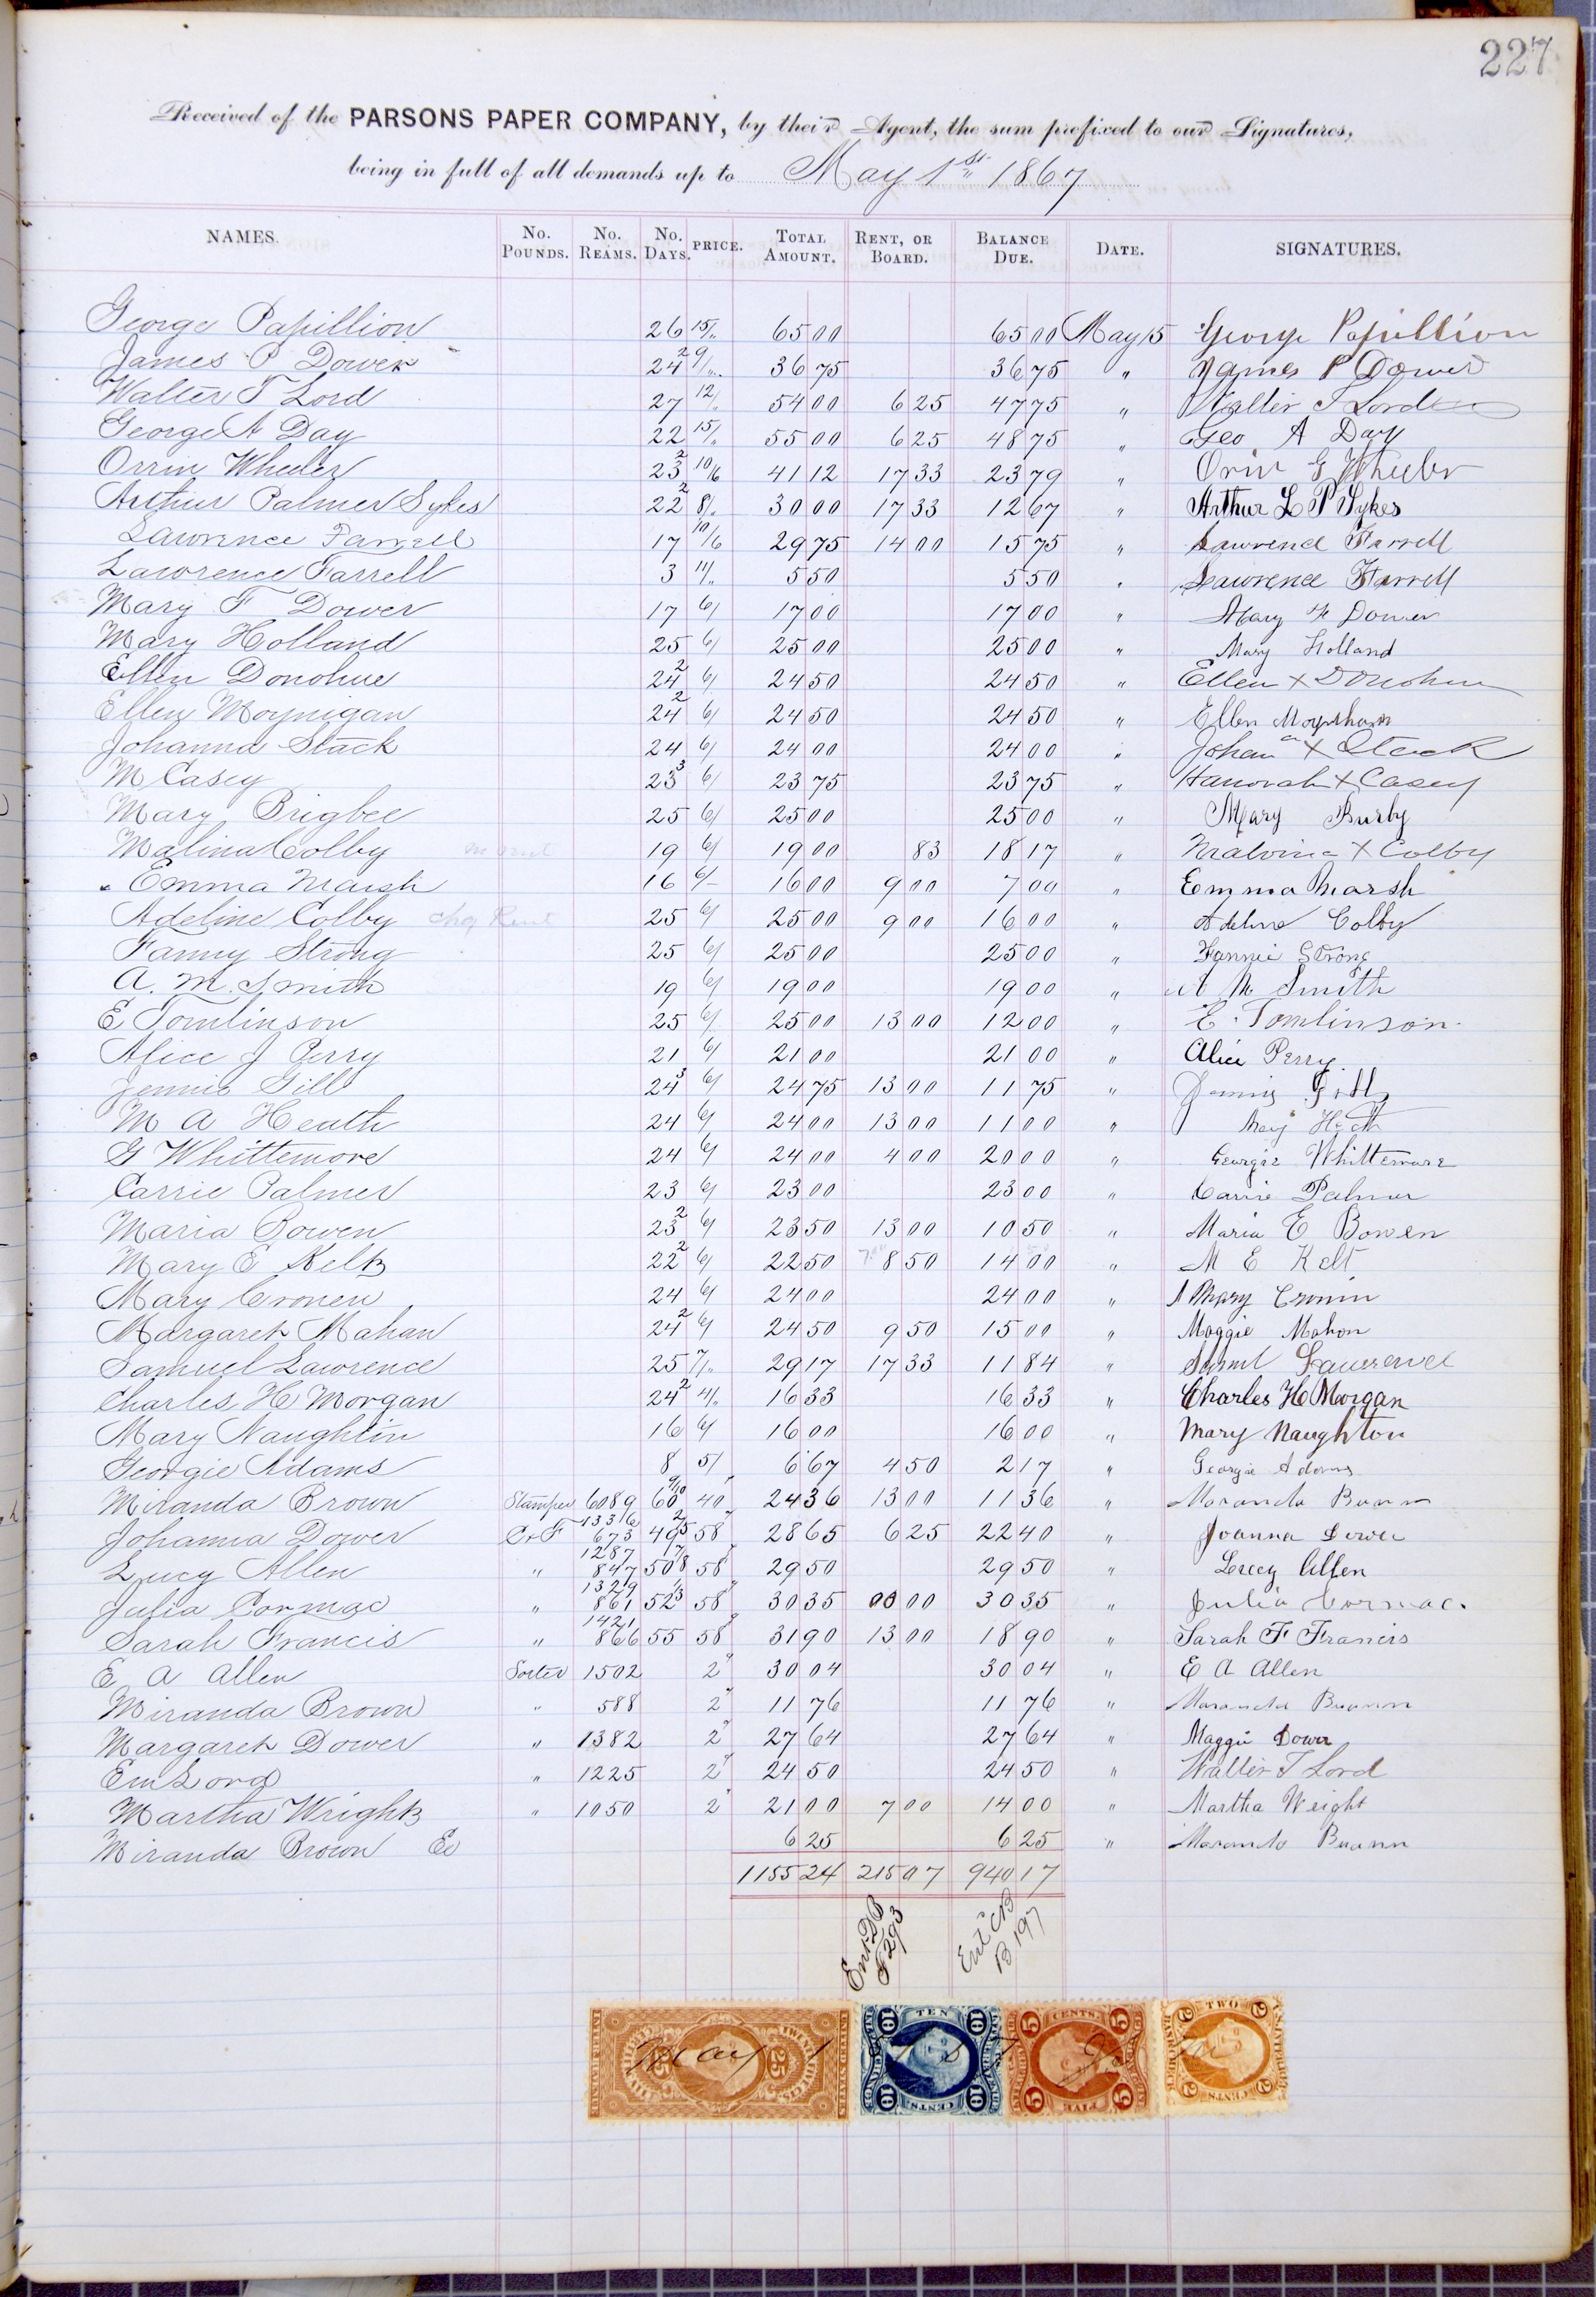 227
Received of the PARSONS PAPER COMPANY, by their Agent, the sum prefixed to our Signatures,
being in full of all demands up to May 1st 1867
NAMES. No. POUNDS. No. REAMS. No. DAYS. PRICE. TOTAL AMOUNT. RENT, OR BOARD. BALANCE DUE. DATE. SIGNATURES.
George Papillion 26 15/" 65 00 65 00 May 15 George Papillion
James P Dower 24 2 9/" 36 75 36 75 " James P Dower
Walter T Lord 27 12/" 54 00 6 25 47 75 " Walter T Lord
George A Day 22 15/" 55 00 6 25 48 75 " Geo A Day
Orrin Wheeler 23 2 10/6 41 12 17 33 23 79 " Orin G Wheeler
Arthur Palmer Sykes 22 2 8/" 30 00 17 33 12 67 " Arthur L P Sykes
Lawrence Farrell 17 10/6 29 75 14 00 15 75 " Lawrence Farrell
Lawrence Farrell 3 11/" 5 50 5 50 " Lawrence Farrell
Mary F Dower 17 6/ 17 00 17 00 " Mary F Dower
Mary Holland 25 6/ 25 00 25 00 " Mary Holland
Ellen Donohue 24 2 6/ 24 50 24 50 " Ellen X Donohue
Ellen Moynigan 24 2 6/ 24 50 24 50 " Ellen
Johanna Stack 24 6/ 24 00 24 00 " Johanna X Stack
M Casey 23 3 6/ 23 75 23 75 " Hanorah X Casey
Mary Brigbee 25 6/ 25 00 25 00 " Mary Burby
Malina Colby 19 6/ 19 00 83 18 17 " Malvina X Colby
Emma Marsh 16 6/ 16 00 9 00 7 00 " Emma Marsh
Adeline Colby chg Rent 25 6/ 25 00 9 00 16 00 " Adeline Colby
Fanny Strong 25 6/ 25 00 25 00 " Fannie Strong
A. M. Smith 19 6/ 19 00 19 00 " A M Smith
E Tomlinson 25 6/ 25 00 13 00 12 00 " E. Tomlinson.
Alice J Perry 21 6/ 21 00 21 00 " Alice Perry
Jennie Gill 24 3 6/ 24 75 13 00 11 75 " Jennie Gill
M A Heath 24 6/ 24 00 13 00 11 00 " Mary Heath
G Whittemore 24 6/ 24 00 4 00 20 00 " Georgie Whittemore
Carrie Palmer 23 6/ 23 00 23 00 " Carrie Palmer
Maria Bowen 23 2 6/ 23 50 13 00 10 50 " Maria E Bowen
Mary E Kelt 22 2 6/ 22 50 8 50 14 00 " M E Kelt
Mary Cronen 24 6/ 24 00 24 00 " Mary Cronin
Margaret Mahan 24 2 6/ 24 50 9 50 15 00 " Maggie Mahon
Samuel Lawrence 25 7/" 29 17 17 33 11 84 " Saml Lawrence
Charles H Morgan 24 2 4/" 16 33 16 33 " Charles H Morgan
Mary Naughtin 16 6/ 16 00 16 00 " Mary Naughton
Georgie Adams 8 5/ 6 67 4 50 2 17 " Georgie Adams
Miranda Brown Stamper 6089 60 9/10 40" 24 36 13 00 11 36 " Maranda Brown
Johanna Dower C & F 1336 673 49 2/5 58" 28 65 6 25 22 40 " Joanna Dower
Lucy Allen " 1287 847 50 7/8 58" 29 50 29 50 " Lucy Allen
Julia Cormac " 1329 861 52 1/3 58" 30 35 00 00 30 35 " Julia Cormac.
Sarah Francis " 1421 866 55 58" 31 90 13 00 18 90 " Sarah F Francis
E A Allen Sorter 1502 2" 30 04 30 04 " E A Allen
Miranda Brown " 588 2" 11 76 11 76 " Maranda Brown
Margaret Dower " 1382 2" 27 64 27 64 " Maggie Dower
Em Lord " 1225 2" 24 50 24 50 " Walter T Lord
Martha Wright " 1050 2" 21 00 7 00 14 00 " Martha Wright
Miranda Brown 6 25 6 25 " Maranda Brown
1155 24 215 07 940 17
Ent DB
F 293
Ent CB
B 197
UNITED STATES 25 25 May 1
TEN 10 10 10 10 CENTS
CENTS. 5 5 5 5 FIVE
TWO 2 2 2 2 CENTS